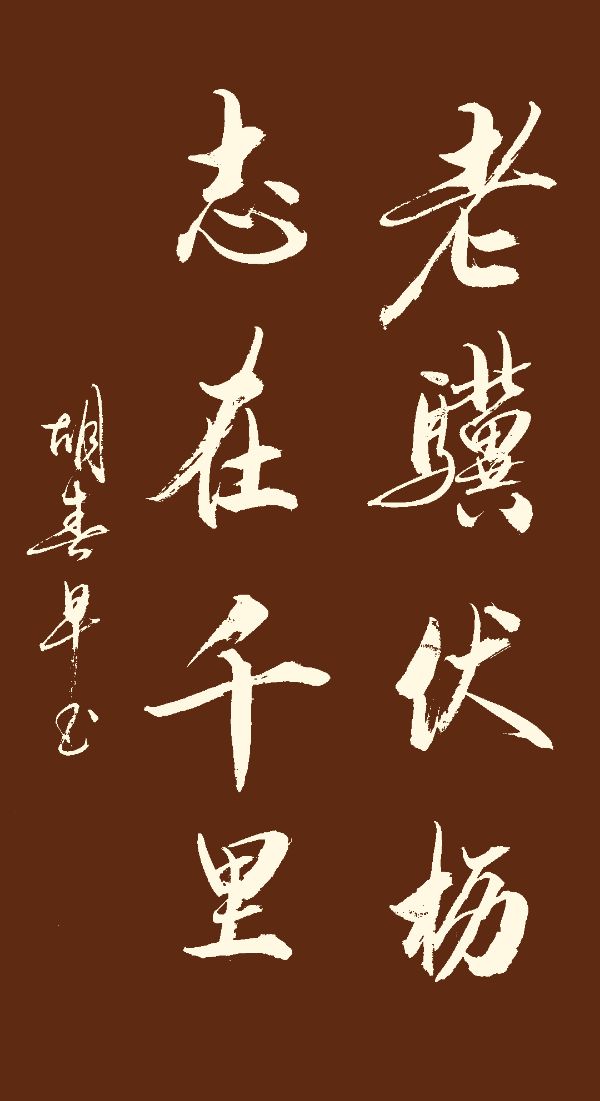 老骥伏枥
志在千里
胡春早书